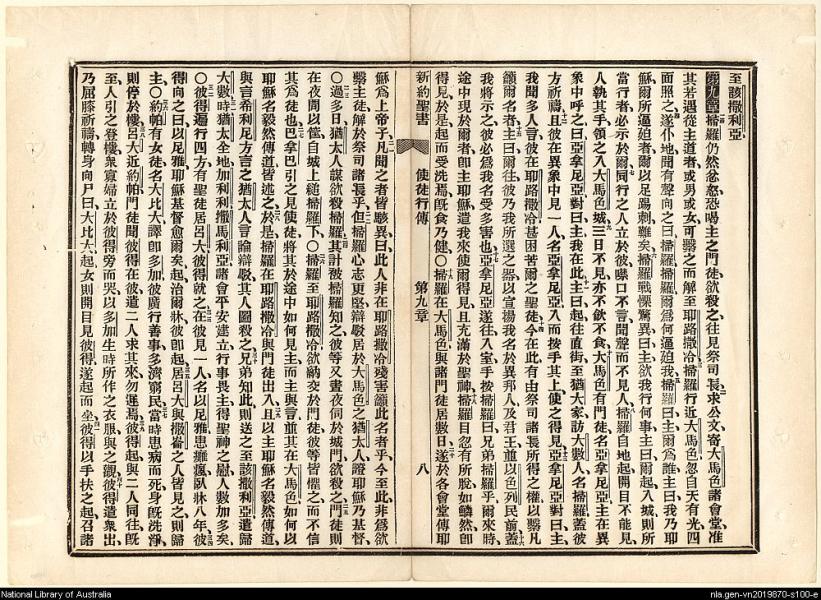 至該撒利亞
第九章掃羅仍然忿怒恐喝主之門徒欲殺之往見祭司長求公文寄大馬色諸會堂准
其若遇從主道者或男或女可繫之而解至耶路撒冷掃羅行近大馬色忽自天有光四
面照之遂仆地聞有聲向之曰掃羅掃羅爾爲何逼迫我掃羅曰主爾爲誰主曰我乃耶
穌爾所逼迫者爾以足踢刺難矣掃羅戰慄驚異曰主欲我行何事主曰爾起入城則所
當行者必示於爾同行之人立於彼噤口不言聞聲而不見人掃羅自地起開目不能見
人執其手領之入大馬色城三日不見亦不飲不食大馬色有門徒名亞拿尼亞主在異
象中呼之曰亞拿尼亞對曰主我在此主曰起往直街至猶大家訪大數人名掃羅蓋彼
方祈禱且彼在異象中見一人名亞拿尼亞入而按手其上使之得見亞拿尼亞對曰主
我聞多人言彼在耶路撒冷甚困苦爾之聖徒今在此有由祭司諸長所得之權以繫凡
籲爾名者主曰爾往彼乃我所選之器以宣揚我名於異邦人及君王並以色列民前蓋
我將示之彼必爲我名受多害也亞拿尼亞遂往入室手按掃羅曰兄弟掃羅乎爾來時
途中現於爾者卽主耶穌遣我來使爾得見且充滿於聖神掃羅目忽有所脫如鱗然卽
得見於是起而受洗焉旣食乃健○掃羅在大馬色與諸門徒居數日遂於各會堂傳耶
新約聖書 使徒行傳 第九章 八
穌爲上帝子凡聞之者皆駭異曰此人非在耶路撒冷殘害籲此名者乎今至此非爲欲
繫主徒解於祭司諸長乎但掃羅心志更堅辯駁居於大馬色之猶太人證耶穌乃基督
○過多日猶太人謀欲殺掃羅其計被掃羅知之彼等又晝夜伺於城門欲殺之門徒則
在夜間以筐自城上縋掃羅下○掃羅至耶路撒冷欲納交於門徒彼等皆懼之而不信
其爲徒也巴拿巴引之見使徒將其於途中如何見主而主與言並其在大馬色如何以
耶穌名毅然傳道皆述之於是掃羅在耶路撒冷與門徒出入且以主耶穌名毅然傳道
與言希利尼方言之猶太人言論辯駁其人圖殺之兄弟知此則送之至該撒利亞遣歸
大數時猶太全地加利利撒馬利亞諸會平安建立行事畏主得聖神之慰人數加多矣
○彼得遍行四方有聖徒居呂大彼得就之在彼見一人名以尼雅患癱瘓臥牀八年彼
得向之曰以尼雅耶穌基督愈爾矣起治爾牀彼卽起居呂大與撒崙之人皆見之則歸
主○約帕有女徒名大比大譯卽多加彼廣行善事多濟窮民當時患病而死身旣洗淨
則停於樓呂大近約帕門徒聞彼得在彼遣二人求其來勿遲焉彼得起與二人同往旣
至人引之登樓衆寡婦立於彼得旁而哭以多加生時所作之衣服與之觀彼得遣衆出
乃屈膝祈禱轉身向尸曰大比大起女則開目見彼得遂起而坐彼得以手扶之起召諸
National Library of Australia
nla.gen-vn2019870-s100-e